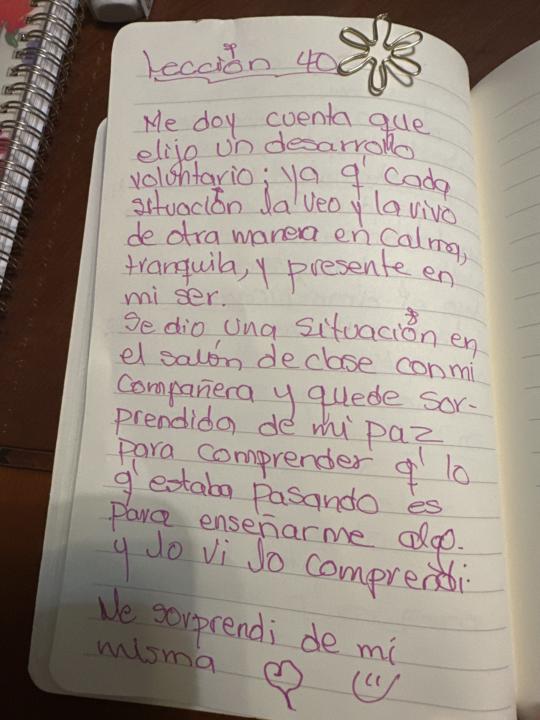 Lección 40
Me doy cuenta que
elijo un desarrollo
voluntario; ya q' cada
situación la veo y la vivo
de otra manera en calma,
tranquila, y presente en
mi ser.
Se dio una situación en
el salón de clase con mi
compañera y quede sor-
prendida de mi paz
para comprender q' lo
q' estaba pasando es
para enseñarme algo.
y lo vi lo comprendi.
Me sorprendi de mi
misma